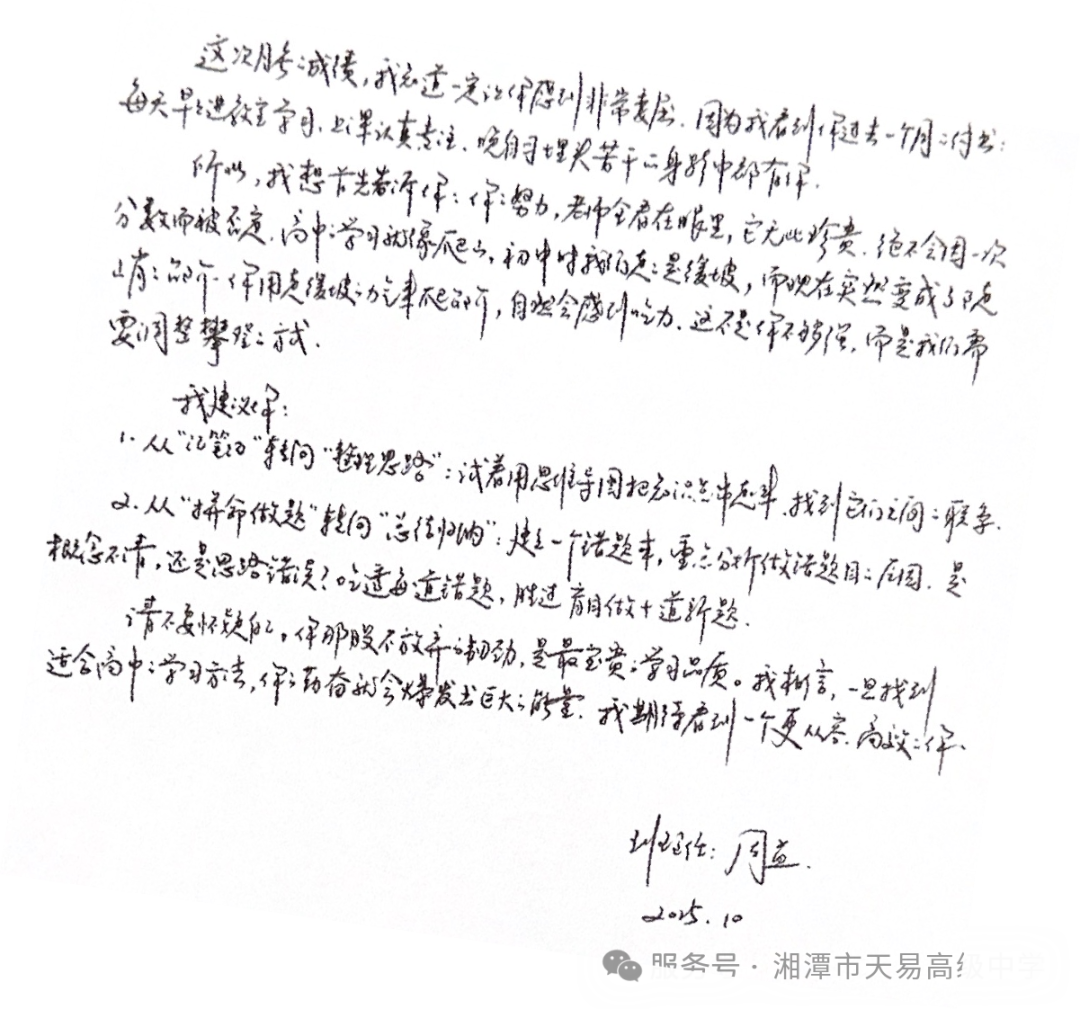 这次月考的成绩，我知道一定让你感到非常委屈．因为我看到你过去一个月的付出：
每天早早进教室学习．上课认真专注．晚自习埋头苦干的身影中都有你．
所以，我想首先告诉你：你的努力，老师全看在眼里，它无比珍贵．绝不会因一次
分数而被否定．高中的学习就像爬山，初中时我们走的是缓坡，而现在突然变成了陡
峭的台阶．你用走缓坡的力气来爬台阶，自然会感到吃力．这不是你不够强，而是我们需
要调整攀登的方式．
我建议你：
1．从“记笔记”转向“整理思路”：试着用思维导图把知识点串起来．找到它们之间的联系．
2．从“拼命做题”转向“总结归纳”：建立一个错题本，重点分析做错题目的原因．是
概念不清，还是思路错误？吃透每道错题，胜过盲目做十道新题．
请不要怀疑自己。你那股不放弃的韧劲，是最宝贵的学习品质。我相信，一旦找到
适合高中的学习方法，你的勤奋就会爆发出巨大的能量．我期待看到一个更从容、高效的你．
班主任：周益．
2025.10
服务号·湘潭市天易高级中学